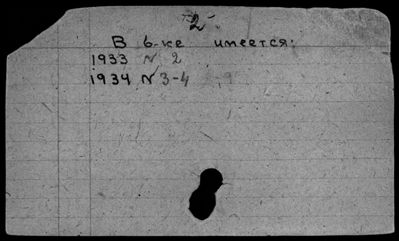 -2-
В б-ке имеется:
1933 № 2
1934 № 3-4